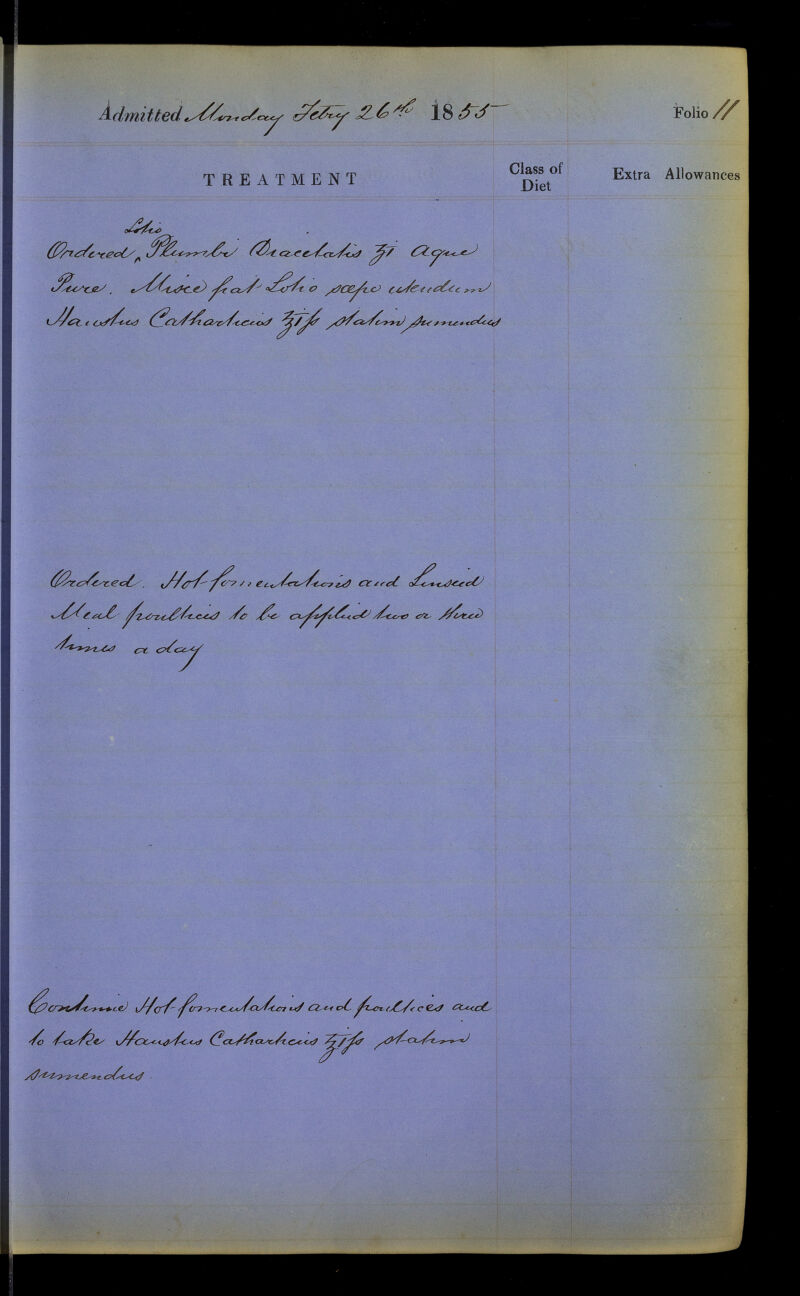 Admitted Monday Febry 26th 1855 Folio 11
TREATMENT Class of Diet Extra Allowances
Lotio
Ordered ‸ Plumbi Diacetatis ℥i Aque
Pure. Misce fiat Lotio sæpe utendum
Haustus Catharticus ℥iſs statim sumendus
Ordered. Hot fomentations and Linseed
Meal poultices to be applied two or three
times a day
Continue Hot fomentations and poultices and
to take Haustus Catharticus ℥iſs statim
sumendus